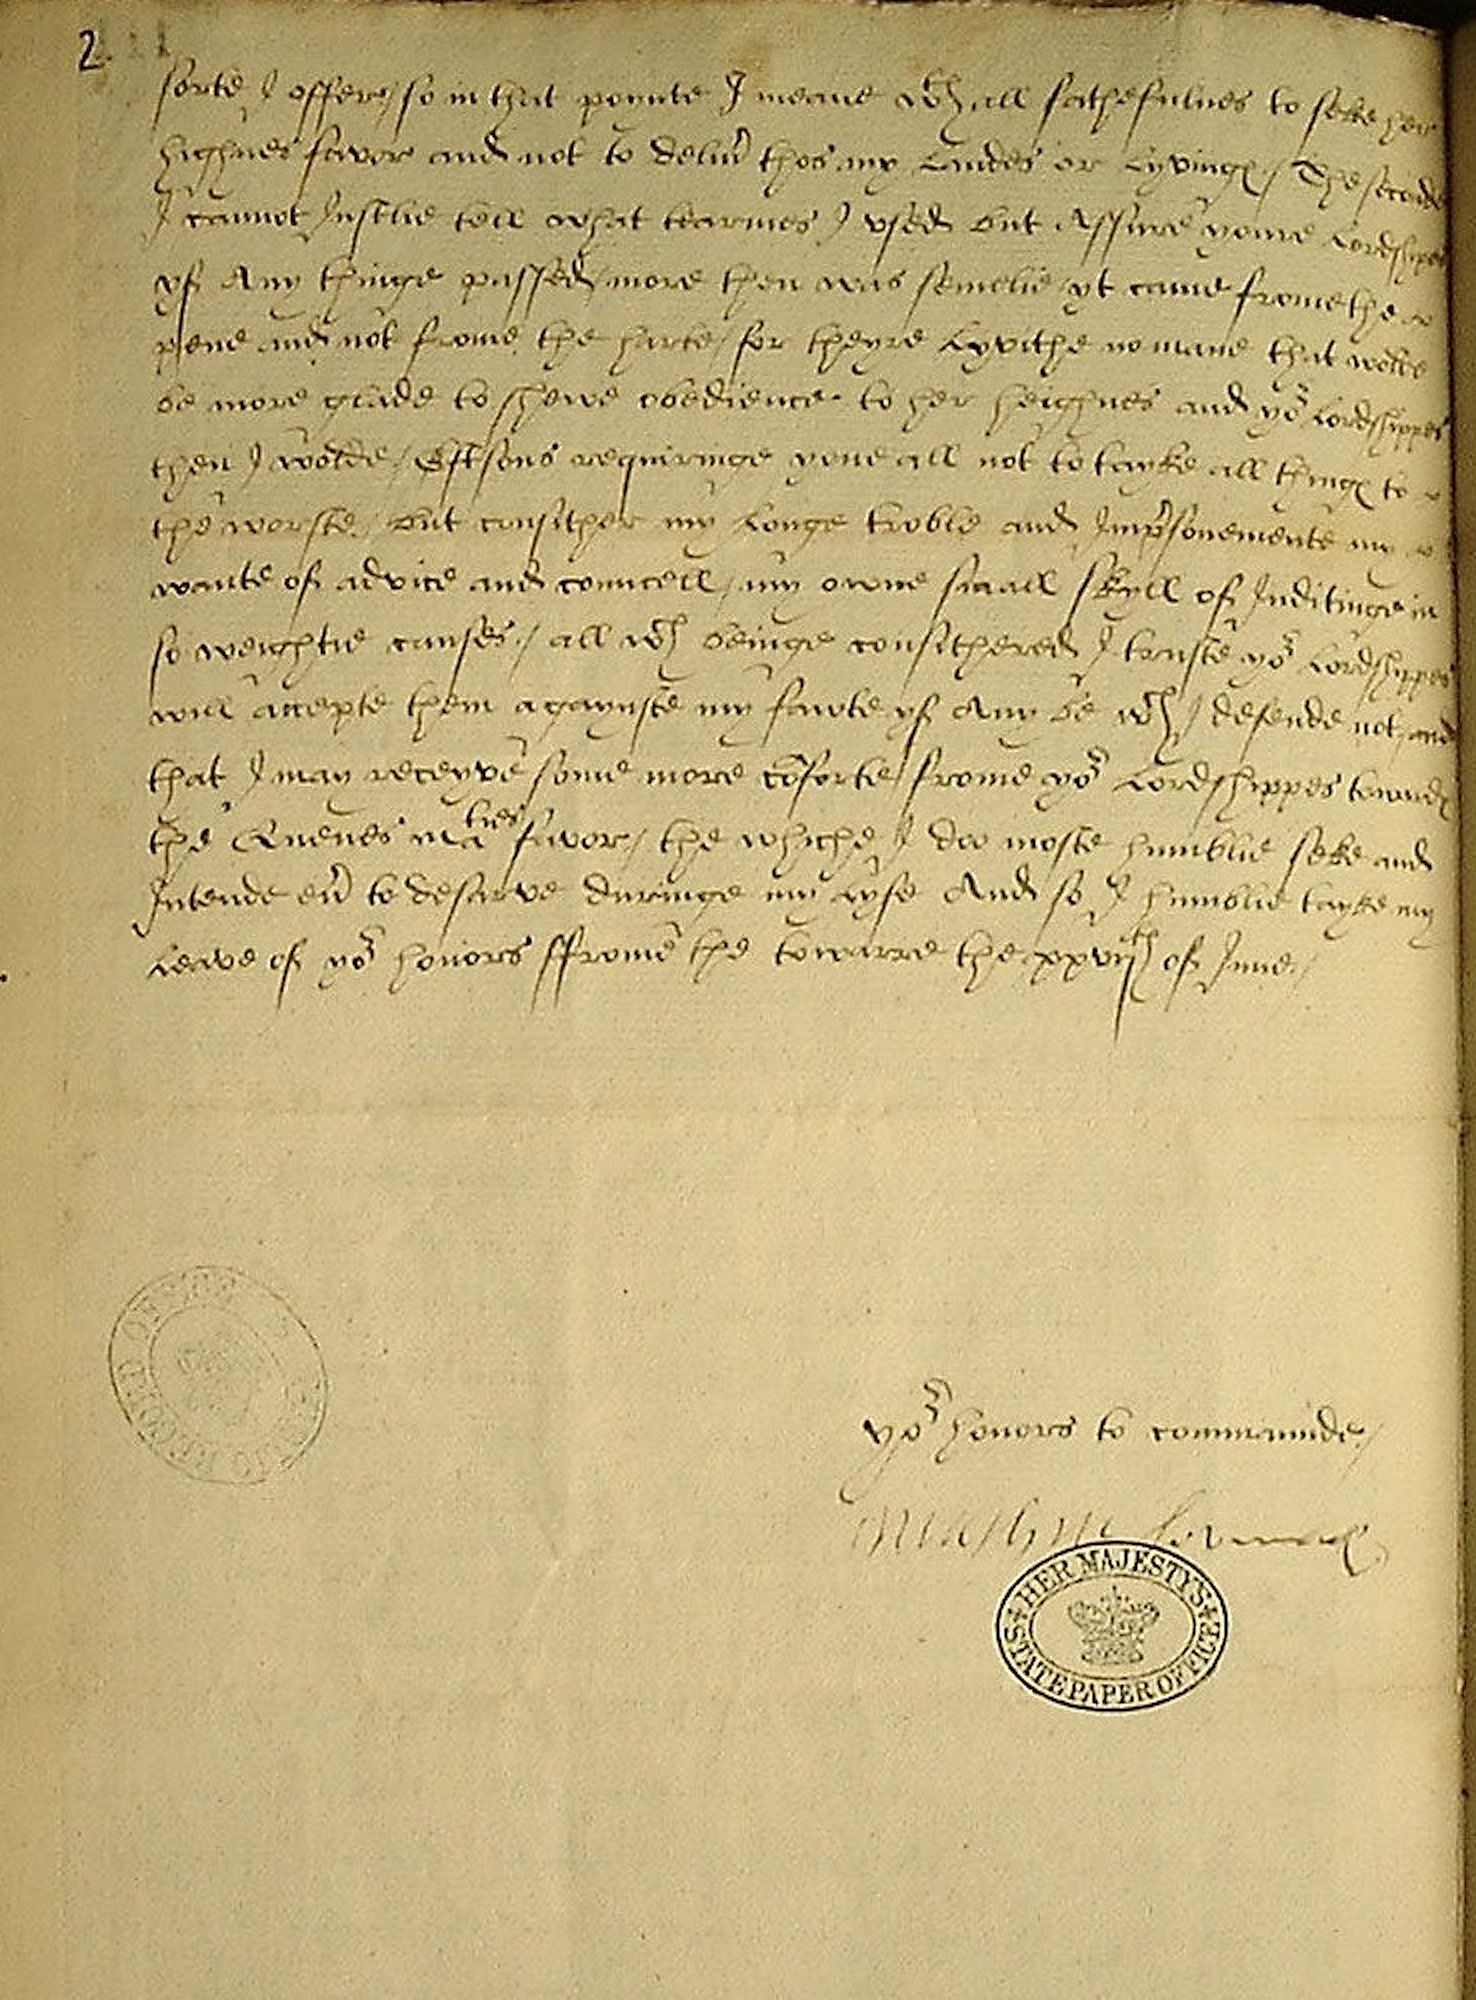 2.
sorte I offer / so in that poynte I meane wth all fathefulnes to seke her
highnes favor and not to deliu thos my landes or lyvinges / The seconde
I cannot Justlie tell what tearmes I vsed but Assure youre Lordshipes
yf Any thinge passed / more then was semelie yt came frome the
pene and not frome the harte / for theyre lyvithe no mane that wolde
be more glade to shewe obedience to her heighnes and yor Lordshippes
then I wolde / Eftsons requiringe youe all not to tayke all thinges to
the worste / but consither my longe troble and Imprsonemente my
wante of advice and councell / my owne smaall skyll of Inditinge in
so weightie causes / all wch beinge consithered I truste yor Lordshippes
will accepte them agaynste my fawte yf Any be wch I defende not / and
that I may receyve some more coforte / frome yor Lordshippes towardes
the Quenes maties favor / the whiche I doo moste humblie seke and
Intende eu to deserve duringe my lyfe And so I humblie tayke my
leave of yor honors ffrome the towarre the xxvijth of June /
yor honors to commaunde /
HER MAJESTY'S
STATE PAPER OFFICE